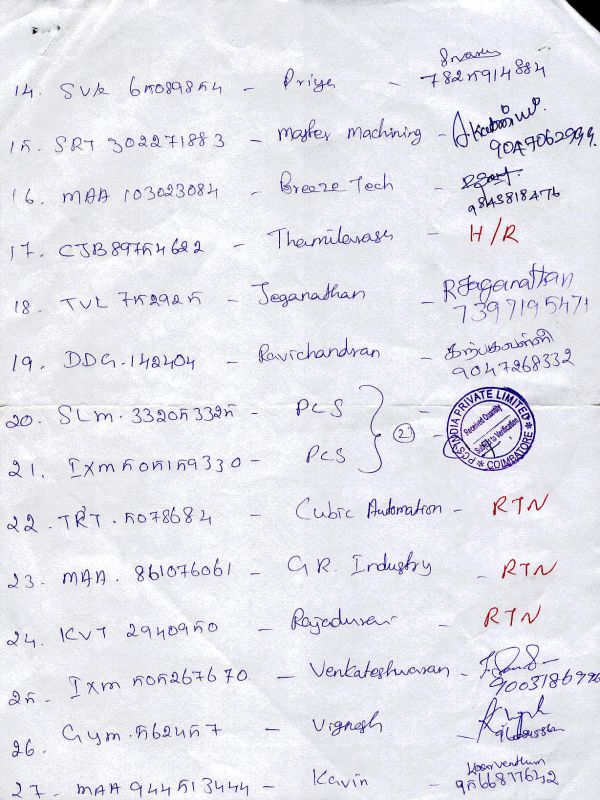 14. SVK 65089854 - Priya - 7825914884
15. SRT 302271883 - Master Machining - 9047062999.
16. MAA 103023084 - Breeze Tech - 9843818476
17. CJB 89754622 - Thamilarasu - H/R
18. TVL 752925 - Jeganathan - R Jaganathan 7397195471
19. DDG. 142404 - Ravichandran - கற்பகவள்ளி 9047268332
20. SLM. 332053325 - PCS -
21. IXM 505159330 - PCS
(2)
PCS INDIA PRIVATE LIMITED
Received Quantity
Subject to Verification
* COIMBATORE *
22. TRT. 5078684 - Cubic Automation - RTN
23. MAA. 861076061 - G R. Industry - RTN
24. KVT 2940950 - Rajadurai - RTN
25. IXM 505267670 - Venkateshwaran -
26. Gym. 562457 - Vignesh -
27. MAA 944513444 - Kavin - 9566877642